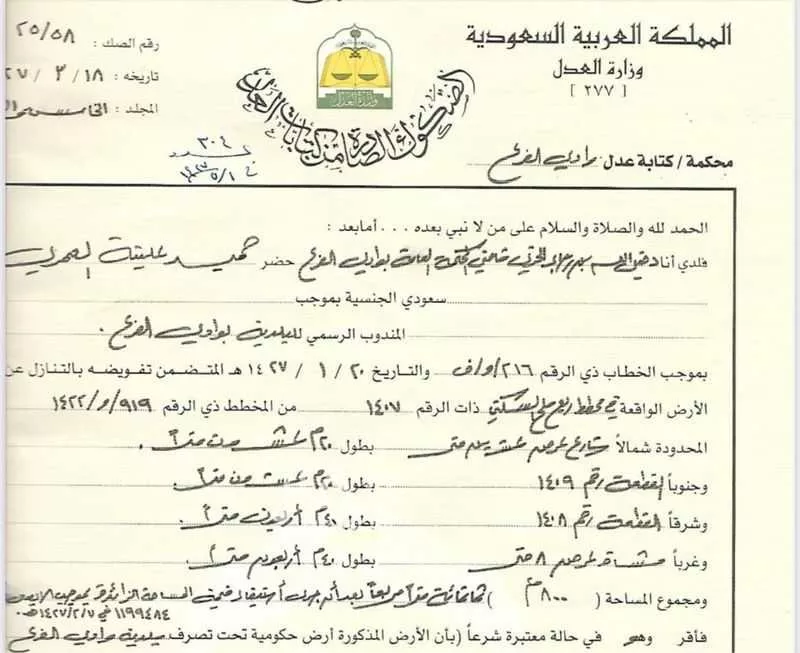 المملكة العربية السعودية
وزارة العدل
[ ٢٧٧ ]
محكمة / كتابة عدل وادي الفرع
الصكوك الصادرة من كتابات العدل
وزارة العدل
رقم الصك : ٢٥/٥٨
تاريخه : ١٨ / ٣ / ٢٧
المجلد : الخامس
٣٠٤
الحمد لله والصلاة والسلام على من لا نبي بعده . . . أما بعد :
فلدي أنا قاضي المحكمة العامة بوادي الفرع حضر حميد
سعودي الجنسية بموجب
المندوب الرسمي للبلدية بوادي الفرع .
بموجب الخطاب ذي الرقم ٢١٦/و/ف والتاريخ ٢٠ / ١ / ١٤٢٧ هـ المتضمن تفويضه بالتنازل عن
الأرض الواقعة في مخطط السكني ذات الرقم ١٤٠٧ من المخطط ذي الرقم ٩١٩/و/١٤٢٢
المحدودة شمالاً شارع عرض عشرين متر بطول ٢٠م عشرون متراً .
وجنوباً القطعة رقم ١٤٠٩ بطول ٢٠م عشرون متراً .
وشرقاً القطعة رقم ١٤٠٨ بطول ٤٠م أربعين متراً .
وغرباً مشاة عرض ٨ متر بطول ٤٠م أربعون متراً .
ومجموع المساحة ( ٨٠٠م ) ثمانمائة متراً مربعاً بعد أن جرى استيفاء قيمة المساحة الزائدة بموجب الإيصال
١١٩٩٤٨٤ في ١٤٢٧/٢/٧هـ
فأقر وهو في حالة معتبرة شرعاً ( بأن الأرض المذكورة أرض حكومية تحت تصرف بلدية وادي الفرع